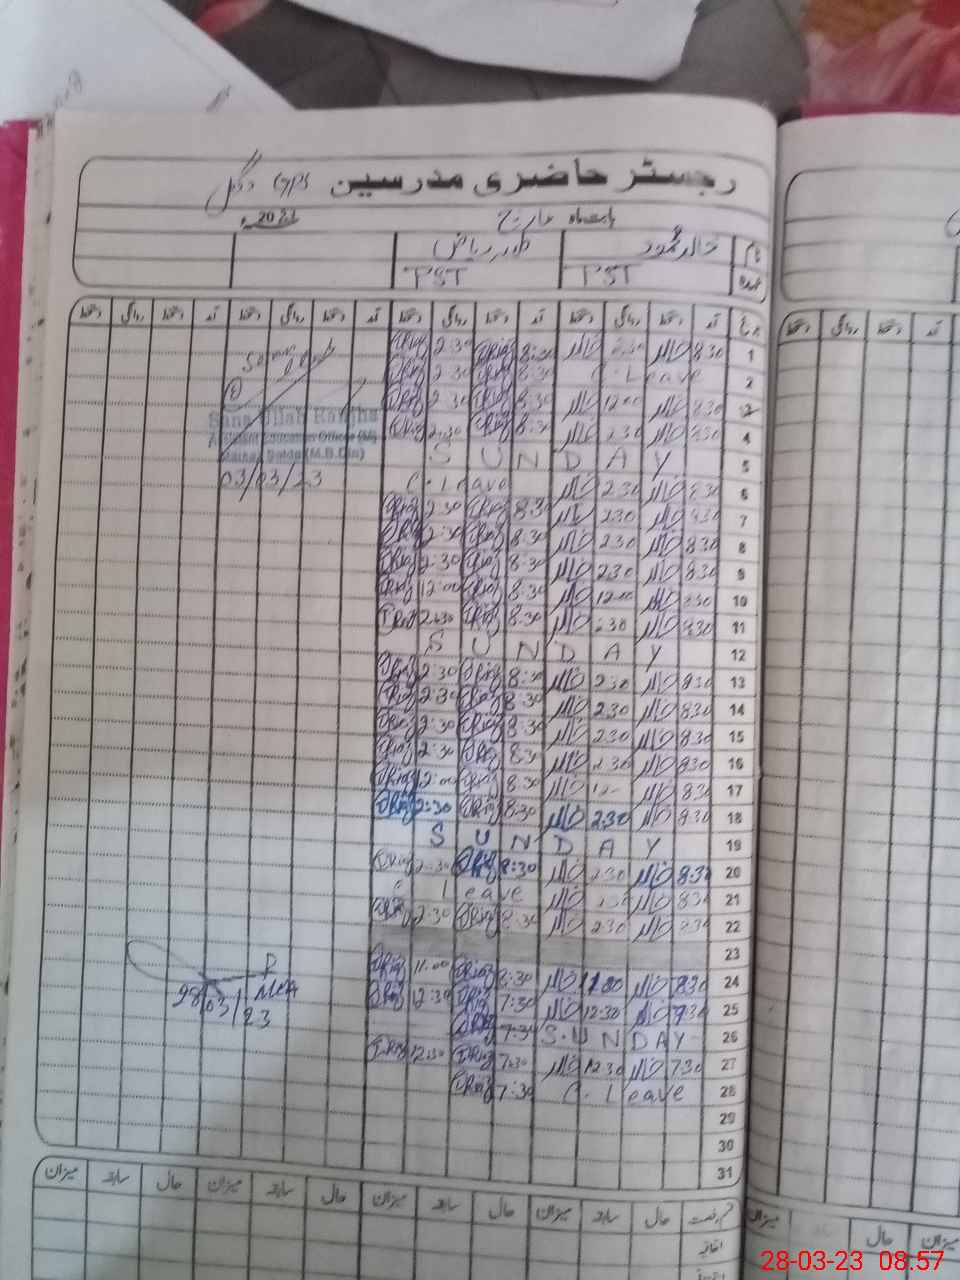 رجسٹر حاضری مدرسین GPS
بابت ماہ مارچ 20ء
نام خالد محمود
عہدہ PST PST
تاریخ آمد دستخط روانگی دستخط آمد دستخط روانگی دستخط آمد دستخط روانگی دستخط آمد دستخط روانگی دستخط
1 8:30 خالد 2:30 خالد 8:30 DRiaz 2:30 DRiaz
2 C. Leave 8:30 DRiaz 2:30 DRiaz
3 8:30 خالد 12:00 خالد 8:30 DRiaz 2:30 DRiaz
Sana Ullah Ranjha
4 8:30 خالد 2:30 خالد 8:30 DRiaz 2:30 DRiaz
Assistant Education Officer (M)
5 SUNDAY
03/03/23
6 8:30 خالد 2:30 خالد C. Leave
7 8:30 خالد 2:30 خالد 8:30 DRiaz 2:30 DRiaz
8 8:30 خالد 2:30 خالد 8:30 DRiaz 2:30 DRiaz
9 8:30 خالد 2:30 خالد 8:30 DRiaz 2:30 DRiaz
10 8:30 خالد 12:00 خالد 8:30 DRiaz 12:00 DRiaz
11 8:30 خالد 2:30 خالد 8:30 DRiaz 2:30 DRiaz
12 SUNDAY
13 8:30 خالد 2:30 خالد 8:30 DRiaz 2:30 DRiaz
14 8:30 خالد 2:30 خالد 8:30 DRiaz 2:30 DRiaz
15 8:30 خالد 2:30 خالد 8:30 DRiaz 2:30 DRiaz
16 8:30 خالد 2:30 خالد 8:30 DRiaz 2:30 DRiaz
17 8:30 خالد خالد 8:30 DRiaz 12:00 DRiaz
18 8:30 خالد 2:30 خالد 8:30 DRiaz 2:30 DRiaz
19 SUNDAY
20 8:30 خالد 2:30 خالد 8:30 DRiaz 2:30 DRiaz
21 8:30 خالد 2:30 خالد C Leave
22 8:30 خالد 2:30 خالد 8:30 DRiaz 2:30 DRiaz
23
24 8:30 خالد 11:00 خالد 8:30 DRiaz 11:00 DRiaz
25 7:30 خالد 12:30 خالد 7:30 DRiaz 12:30 DRiaz
MEA
28/03/23
26 SUNDAY 7:30 DRiaz
27 7:30 خالد 12:30 خالد 7:30 DRiaz 12:30 DRiaz
28 C. Leave 7:30 DRiaz
29
30
31
قسم رخصت حال سابقہ میزان حال سابقہ میزان حال سابقہ میزان حال سابقہ میزان
اتفاقیہ
میزان حال میزان
28-03-23 08.57